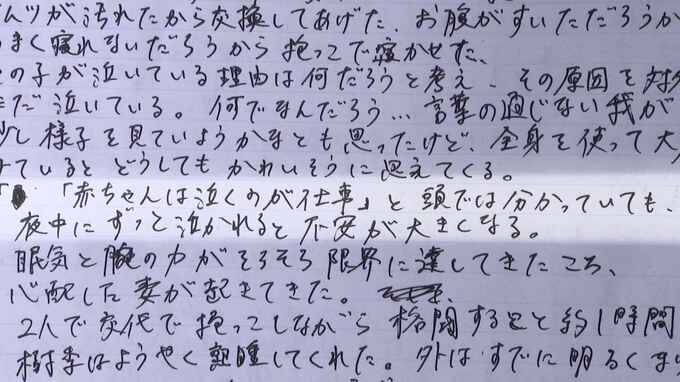 ムツが汚れたから交換してあげた、お腹がすいただろうか
まく寝れないだろうから抱っこで寝かせた、
の子が泣いている理由は何だろうと考え、その原因を対
だ泣いている。何でなんだろう…言葉の通じない我が
少し様子を見ていようかなとも思ったけど、全身を使って大
ているとどうしてもかわいそうに思えてくる。
「赤ちゃんは泣くのが仕事」と頭では分かっていても、
夜中にずっと泣かれると不安が大きくなる。
眠気と腕の力がそろそろ限界に達してきたころ、
心配した妻が起きてきた。
2人で交代で抱っこしながら格闘すること約1時間
樹季はようやく熟睡してくれた。外はすでに明るくな